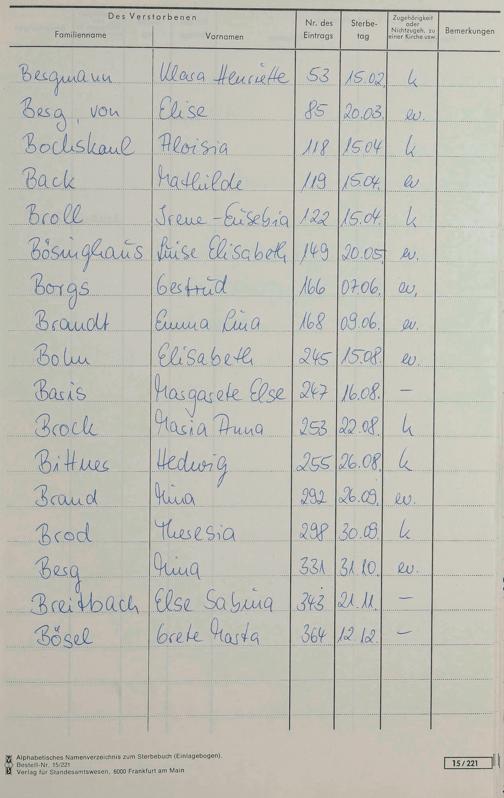 Des Verstorbenen
Familienname Vornamen Nr. des Eintrags Sterbe-tag Zugehörigkeit oder Nichtzugeh. zu einer Kirche usw. Bemerkungen
Bergmann Klara Henriette 53 15.02. k
Berg, von Elise 85 20.03. ev.
Bochskanl Aloisia 118 15.04 k
Back Mathilde 119 15.04. ev
Broll Irene-Eusebia 122 15.04. k
Bösinghaus Luise Elisabeth 149 20.05. ev.
Borgs Gertrud 166 07.06. ev.
Brandt Emma Lina 168 09.06. ev.
Bohn Elisabeth 245 15.08. ev.
Baris Margarete Else 247 16.08. –
Brock Maria Anna 253 22.08. k
Bittner Hedwig 255 26.08. k
Brand Mina 292 26.09. ev.
Brod Theresia 298 30.09. k
Berg Mina 331 31.10. ev.
Breitbach Else Sabina 343 21.11. –
Bösel Grete Marta 364 12.12. –
Alphabetisches Namenverzeichnis zum Sterbebuch (Einlagebogen).
Bestell-Nr. 15/221
Verlag für Standesamtswesen, 6000 Frankfurt am Main
15/221